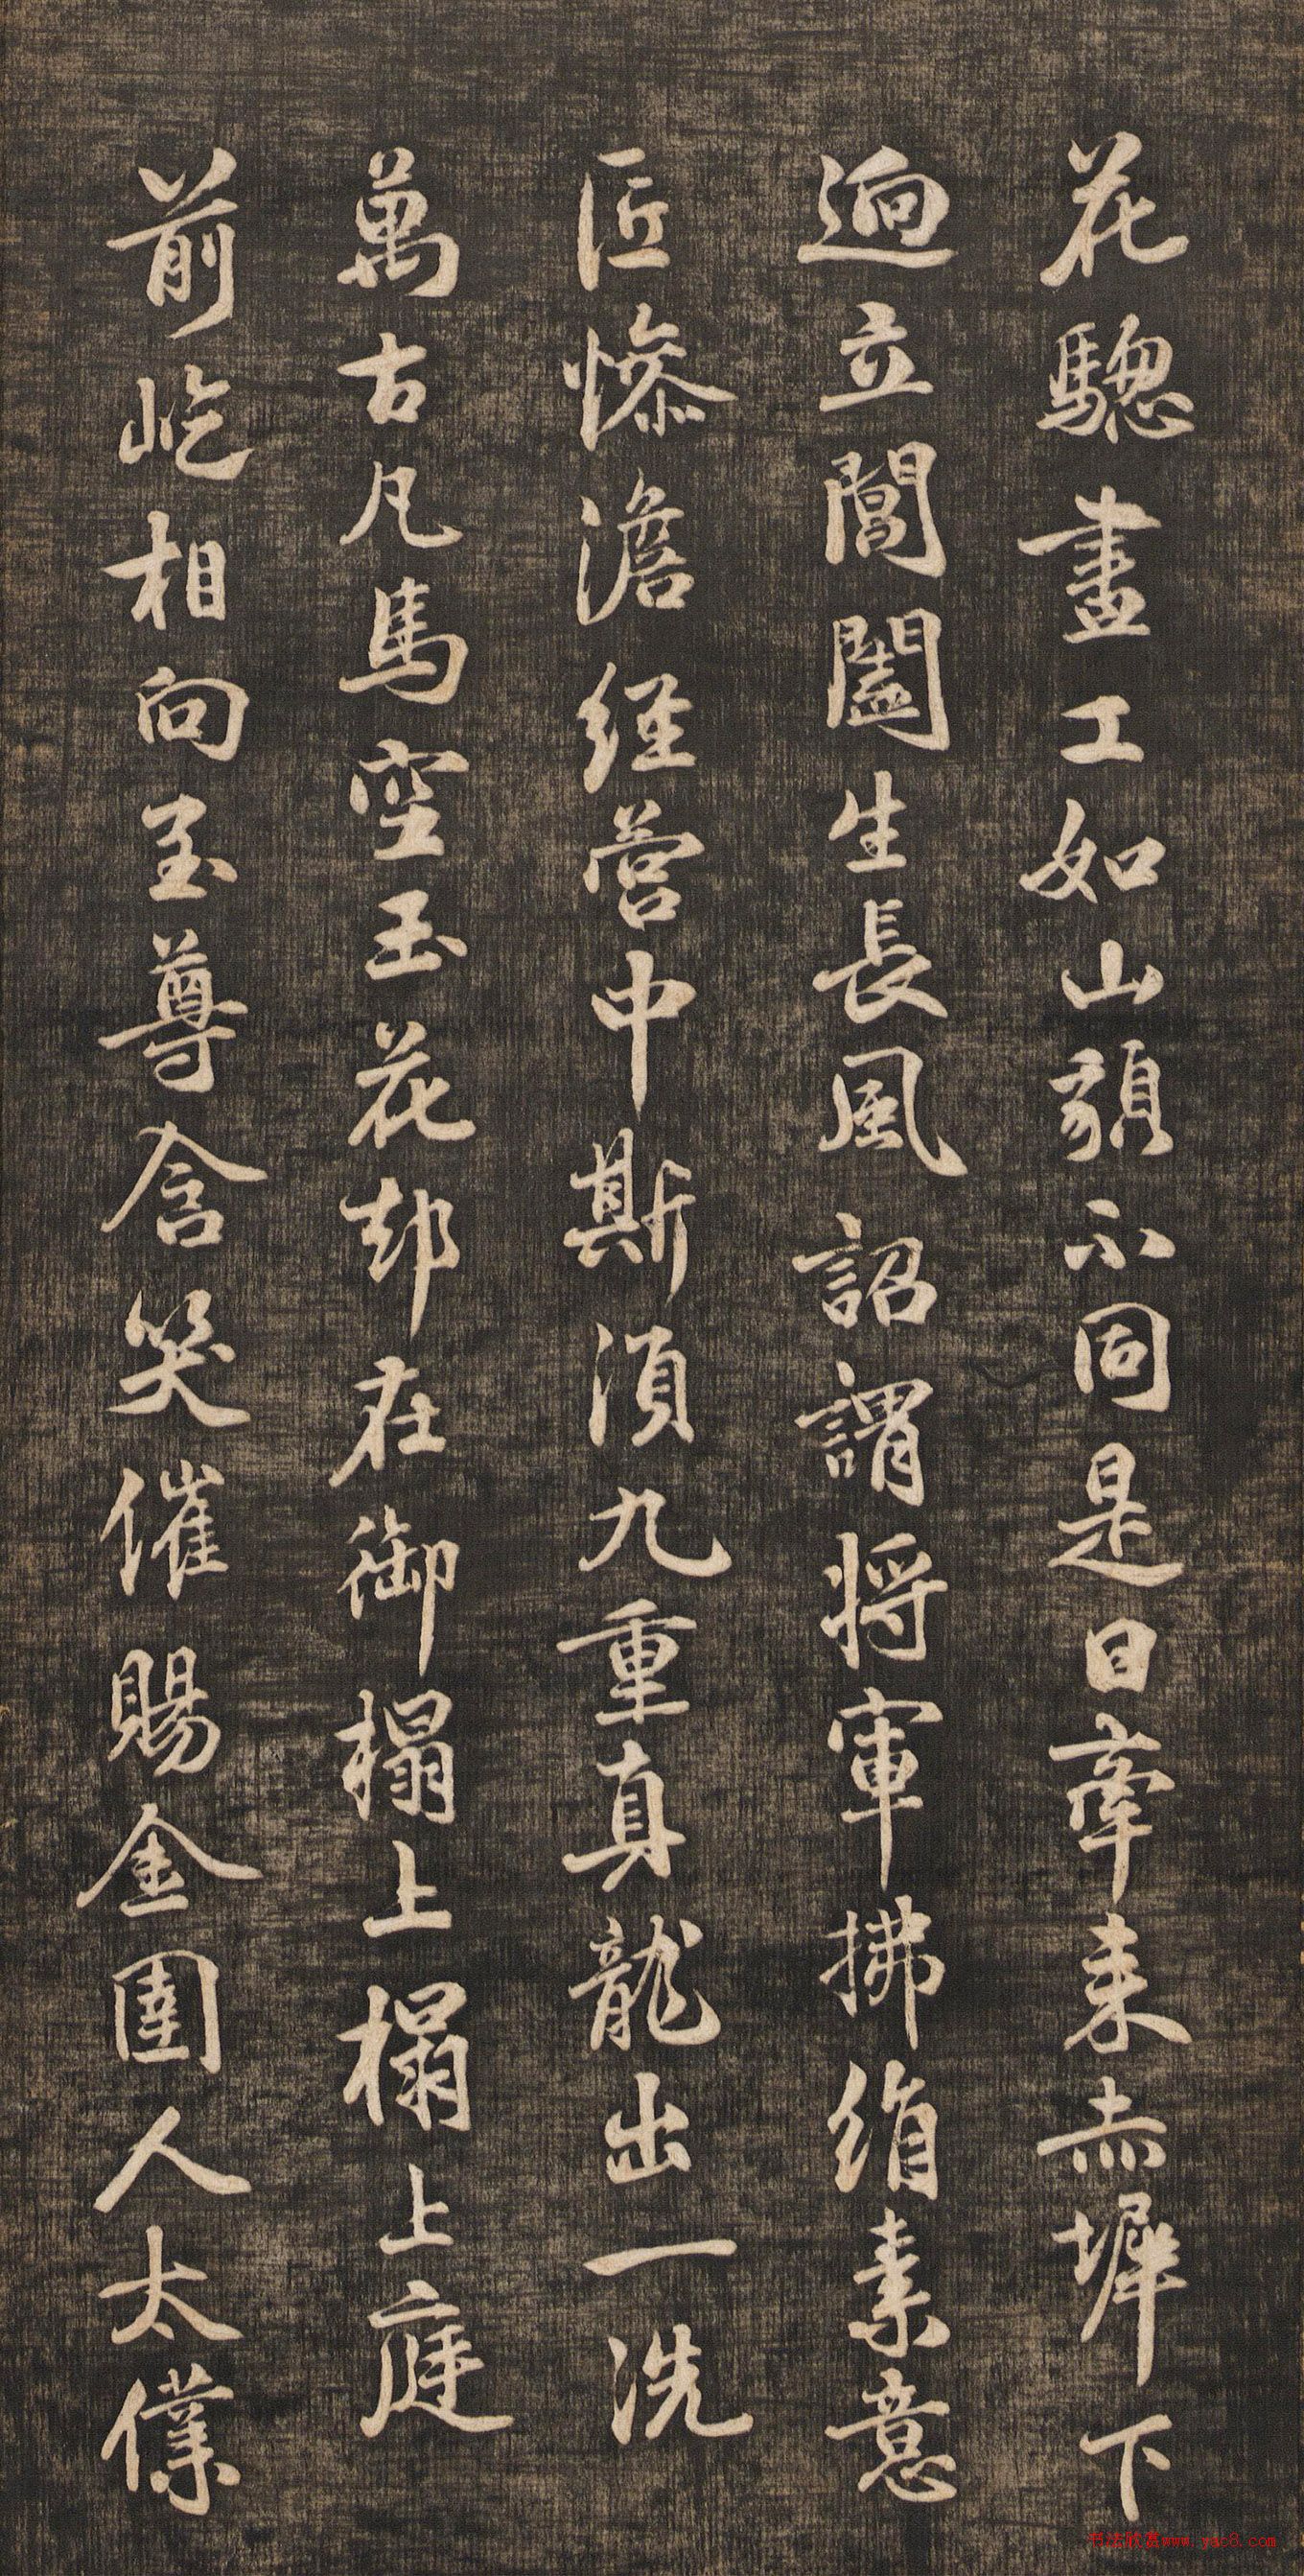 花驄畫工如山貌不同是日牽来赤墀下
迥立閶闔生長風詔謂將軍拂絹素意
匠慘澹經營中斯須九重真龍出一洗
萬古凡馬空玉花却在御榻上榻上庭
前屹相向至尊含笑催賜金圉人太僕
书法欣赏www.yac8.com